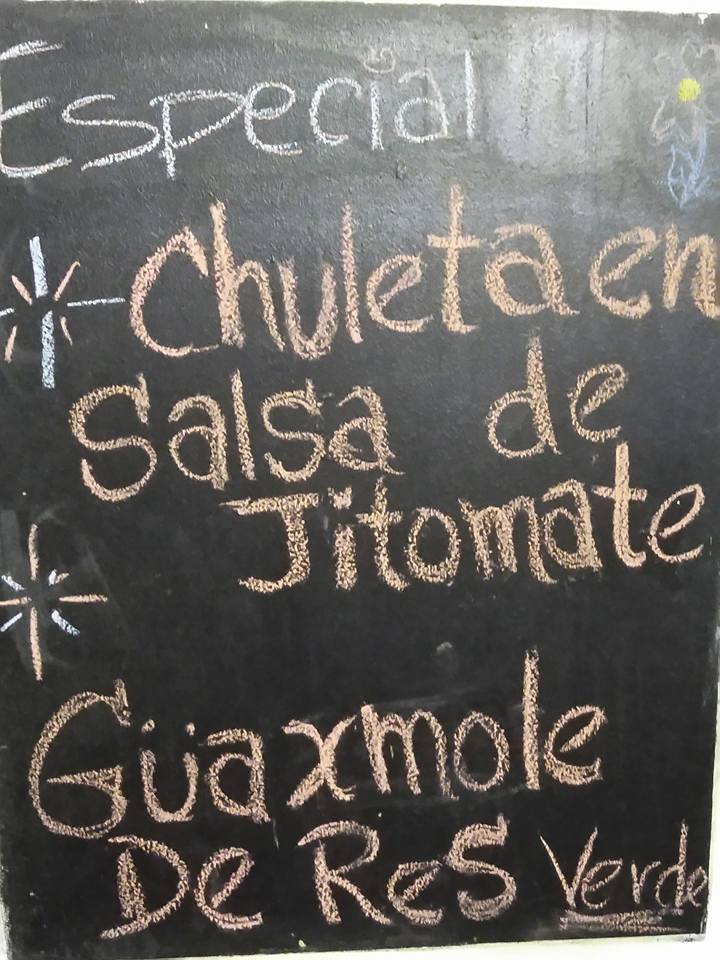 Especial
Chuleta en
Salsa de
Jitomate
Güaxmole
De Res Verde